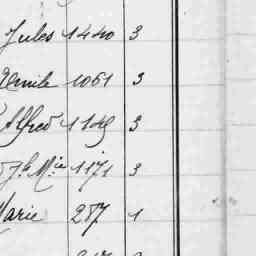 Jules 1440 3
Emile 1061 3
Alfred 1149 3
Jh Mie 1171 3
Marie 257 1